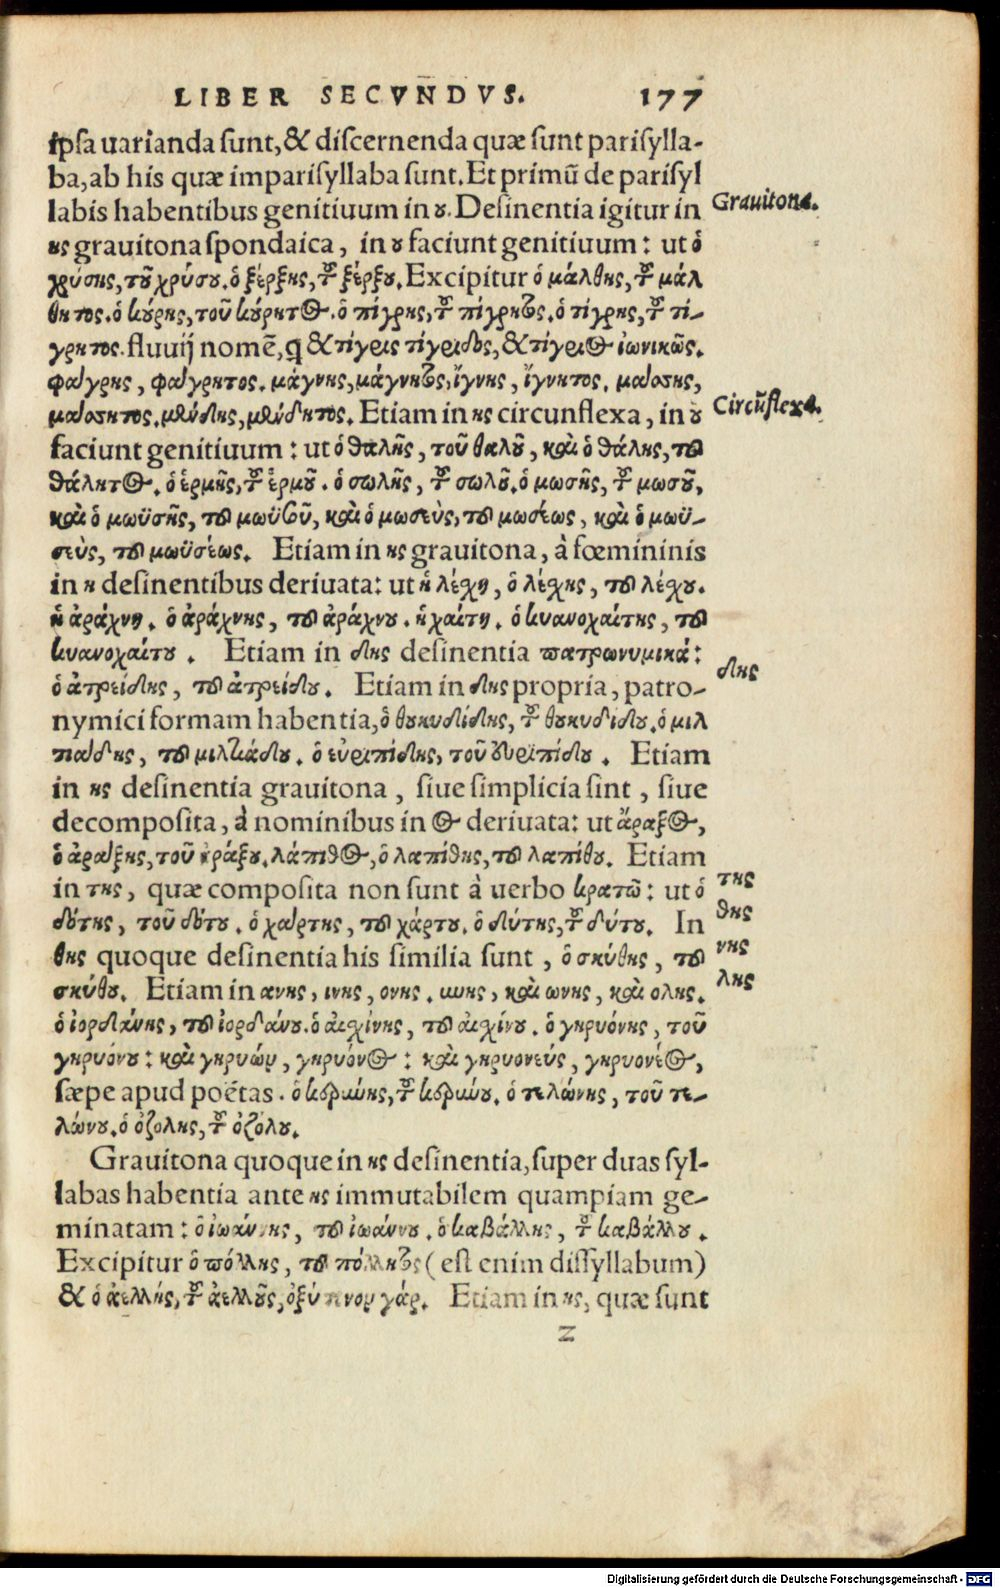 LIBER SECVNDVS. 177
ipsa uarianda sunt, & discernenda quæ sunt parisylla-
ba, ab his quæ imparisyllaba sunt. Et primũ de parisyl
labis habentibus genitiuum in ȣ. Desinentia igitur in
Grauitona.
ης grauitona spondaica, in ȣ faciunt genitiuum: ut ὁ
χρύσης, τοῦ χρύσȣ. ὁ ξέρξης, τοῦ ξέρξȣ. Excipitur ὁ μάλθης, τοῦ μάλ
θητος. ὁ κύρης, τοῦ κύρητος. ὁ πίγρης, τοῦ πίγρητος. ὁ τίγρης, τοῦ τί-
γρητος. fluuij nomẽ, & τίγρις τίγριδος, & τίγριος ἰωνικῶς.
φάγρης, φάγρητος. μάγνης, μάγνητος, ἴγνης, ἴγνητος.
Etiam in ης circunflexa, in ȣ
Circũflexa.
faciunt genitiuum: ut ὁ θαλῆς, τοῦ θαλοῦ, καὶ ὁ θάλης, τοῦ
θάλητος. ὁ ἑρμῆς, τοῦ ἑρμοῦ. ὁ σωλῆς, τοῦ σωλοῦ. ὁ μωσῆς, τοῦ μωσοῦ,
καὶ ὁ μωϋσῆς, τοῦ μωϋσοῦ, καὶ ὁ μωσεὺς, τοῦ μωσέως, καὶ ὁ μωϋ-
σεὺς, τοῦ μωϋσέως. Etiam in ης grauitona, à fœmininis
in η desinentibus deriuata: ut ἡ λέχη, ὁ λέχης, τοῦ λέχȣ.
ἡ ἀράχνη. ὁ ἀράχνης, τοῦ ἀράχνȣ. ἡ χαίτη. ὁ κυανοχαίτης, τοῦ
κυανοχαίτȣ. Etiam in δης desinentia πατρωνυμικά:
δης
ὁ ἀτρείδης, τοῦ ἀτρείδȣ. Etiam in δης propria, patro-
nymici formam habentia, ὁ θȣκυδίδης, τοῦ θȣκυδίδȣ. ὁ μιλ
τιάδης, τοῦ μιλτιάδȣ. ὁ εὐριπίδης, τοῦ εὐριπίδȣ. Etiam
in ης desinentia grauitona, siue simplicia sint, siue
decomposita, à nominibus in ος deriuata: ut ἄραξος,
ὁ ἀράξης, τοῦ ἀράξȣ. λάπιθος, ὁ λαπίθης, τοῦ λαπίθȣ. Etiam
in της, quæ composita non sunt à uerbo κρατῶ: ut ὁ
της
δότης, τοῦ δότȣ. ὁ χάρτης, τοῦ χάρτȣ. ὁ δύτης, τοῦ δύτȣ. In
θης
θης quoque desinentia his similia sunt, ὁ σκύθης, τοῦ
νης
σκύθȣ. Etiam in ανης, ινης, ονης, υνης, καὶ ωνης, καὶ ολης.
λης
ὁ ἰορδάνης, τοῦ ἰορδάνȣ. ὁ αἰσχίνης, τοῦ αἰσχίνȣ. ὁ γηρυόνης, τοῦ
γηρυόνȣ: καὶ γηρυὼν, γηρυόνος: καὶ γηρυονεύς, γηρυονέος,
sæpe apud poëtas. ὁ τελώνης, τοῦ τε-
λώνȣ. ὁ ὀζόλης, τοῦ ὀζόλȣ.
Grauitona quoque in ης desinentia, super duas syl-
labas habentia ante ης immutabilem quampiam ge-
minatam: ὁ ἰωάννης, τοῦ ἰωάννȣ. ὁ καβάλλης, τοῦ καβάλλȣ.
Excipitur ὁ πόλλης, τοῦ πόλλητος (est enim dissyllabum)
& ὁ ἀελλής, τοῦ ἀελλοῦς, ὀξύτονον γάρ. Etiam in ης, quæ sunt
z
Digitalisierung gefördert durch die Deutsche Forschungsgemeinschaft - DFG